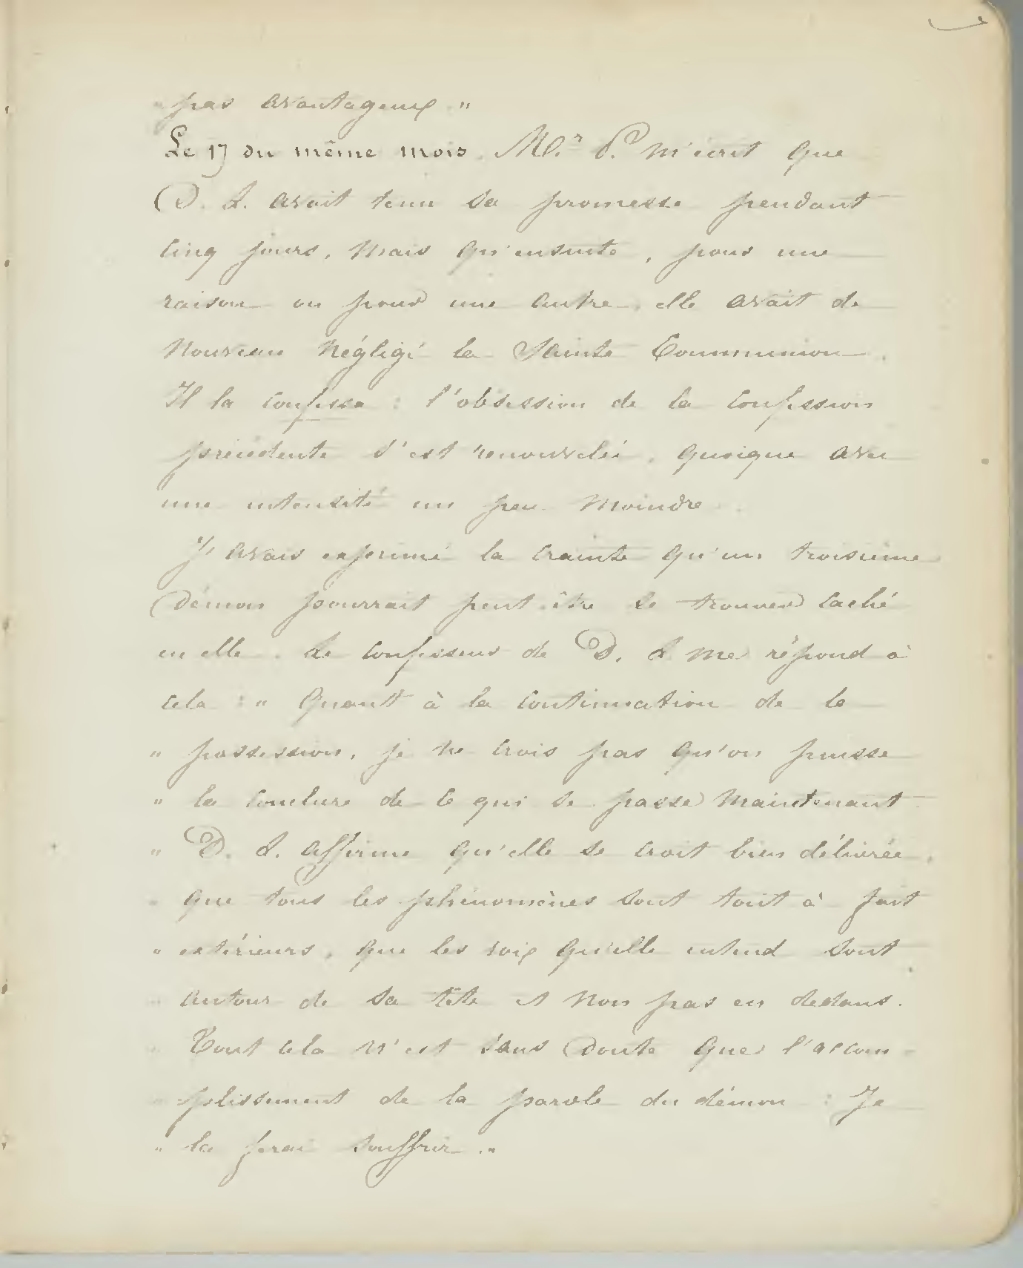 " pas avantageux. "
Le 17 du même mois, Mr. P. m'écrit que
D. L. avait tenu sa promesse pendant
cinq jours, mais qu'ensuite, pour une
raison ou pour une autre, elle avait de
nouveau négligé la Sainte Communion.
Il la confessa : l'obsession de la confession
précédente s'est renouvelée, quoique avec
une intensité un peu moindre.
J'avais exprimé la crainte qu'un troisième
démon pourrait peut-être se trouver caché
en elle. Le confesseur de D. L. me répond à
cela : " Quant à la continuation de la
" possession, je ne crois pas qu'on puisse
" la conclure de ce qui se passe maintenant
" D. L. affirme qu'elle se croit bien délivrée,
" que tous les phénomènes sont tout à fait
" extérieurs, que les voix qu'elle entend sont
" autour de sa tête et non pas en dedans.
" Tout cela n'est sans doute que l'accom-
" plissement de la parole du démon : Je
" la ferai souffrir. "